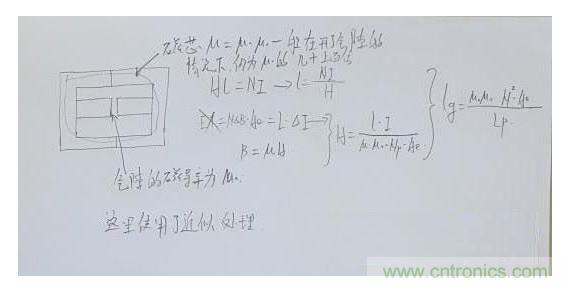 磁芯 μ=μr·μ0 一般在开了气隙的
情况下,仍为μ0的几十上百倍
Hl=NI → l=NI/H
=NΔB·Ae=L·ΔI
B=μH
H=L·I/μr·μ0·Np·Ae
lg=μrμ0 N²·Ae/Lp
气隙的磁导率为μ0
这里使用了近似处理
www.cntronics.com